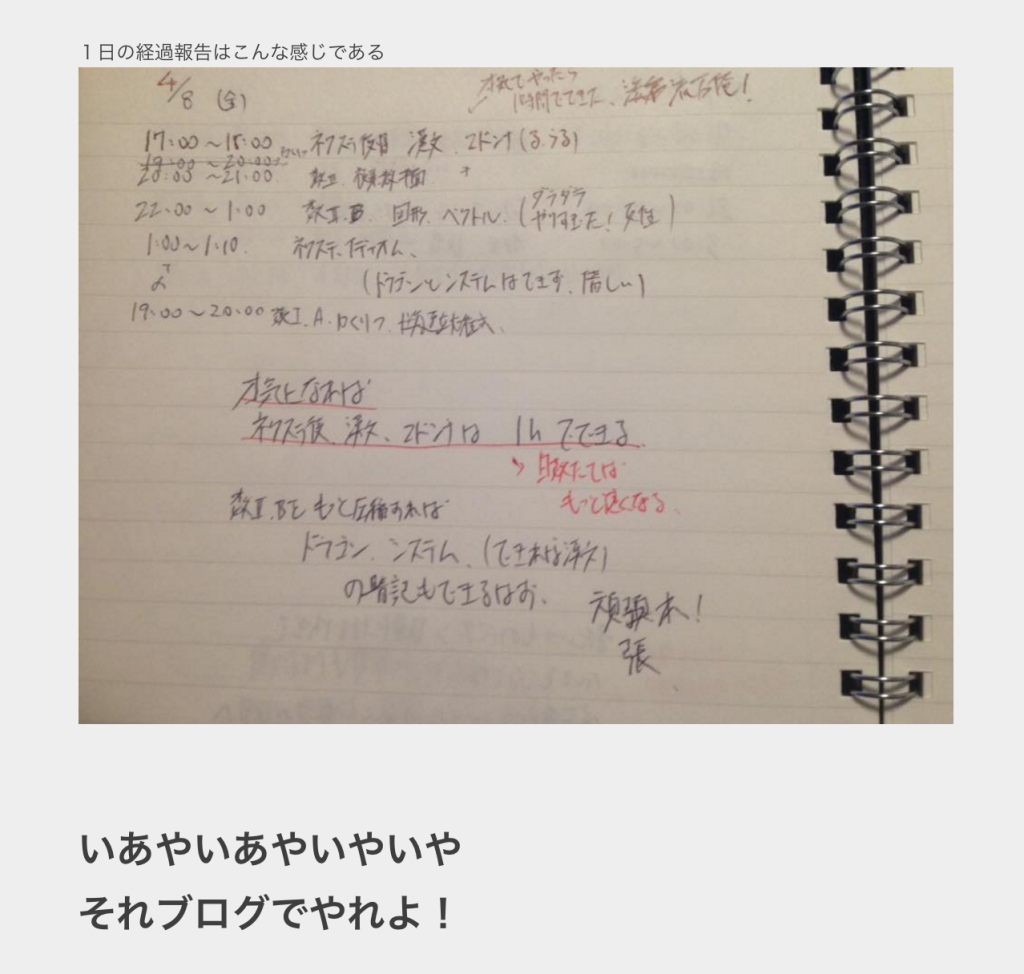 1日の経過報告はこんな感じである
4/8 (金)
本気でやったら
1時間でできた、
17:00〜18:00 ネクステ復習 漢文 マドンナ(る.らる)
19:00〜20:00
20:00〜21:00 数Ⅱ.
22:00〜1:00 数Ⅱ.B. 図形.ベクトル.(ダラダラ
やりすぎた!反省)
1:00〜1:10. ネクステ.イディオム、
(ドラゴンとシステムはできず、惜しい)
19:00〜20:00 数Ⅰ.A.
本気になれば
ネクステ復 漢文、マドンナは 1hでできる.
もっと良くなる.
数Ⅱ.Bを もっと圧縮すれば
ドラゴン、システム、(できれば漢文)
の暗記もできるはず、
頑張ホ!
張
いあやいあやいやいや
それブログでやれよ!